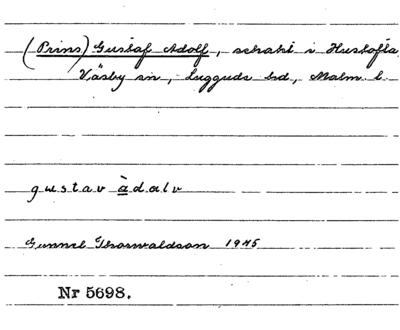 (Prins) Gustaf Adolf, schakt i Hustofta,
Väsby sn, Luggude hd, Malm. l.
gustav àdalv
Gunnel Thorwaldson 1945
Nr 5698.